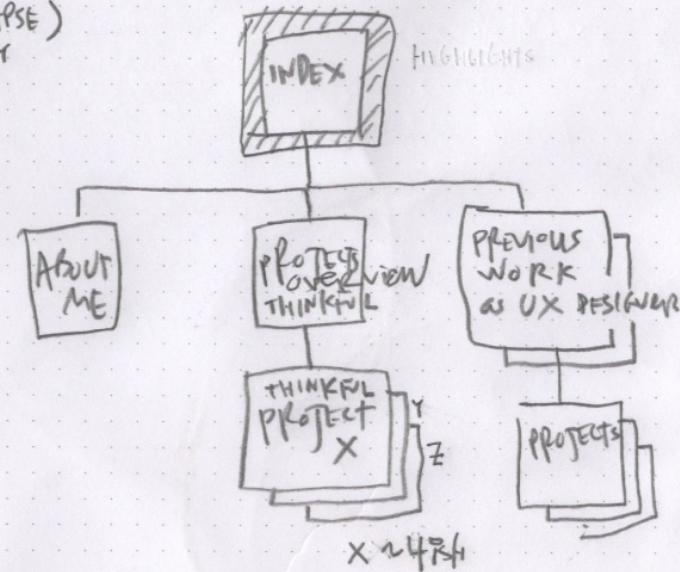 PSE)
INDEX
HIGHLIGHTS
ABOUT
ME
PROJECTS
OVERVIEW
THINKFUL
PREVIOUS
WORK
as UX DESIGNER
THINKFUL
PROJECT
X
Y
Z
PROJECTS
X ~ 4ish